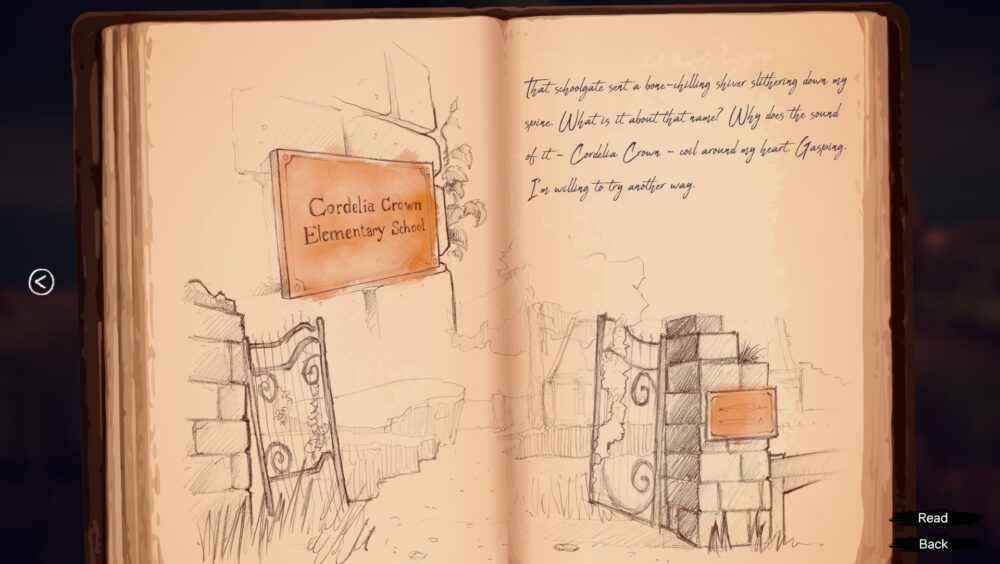 Cordelia Crown
Elementary School
That schoolgate sent a bone-chilling shiver slithering down my
spine. What is it about that name? Why does the sound
of it - Cordelia Crown - coil around my heart. Gasping.
I'm willing to try another way.
Read
Back